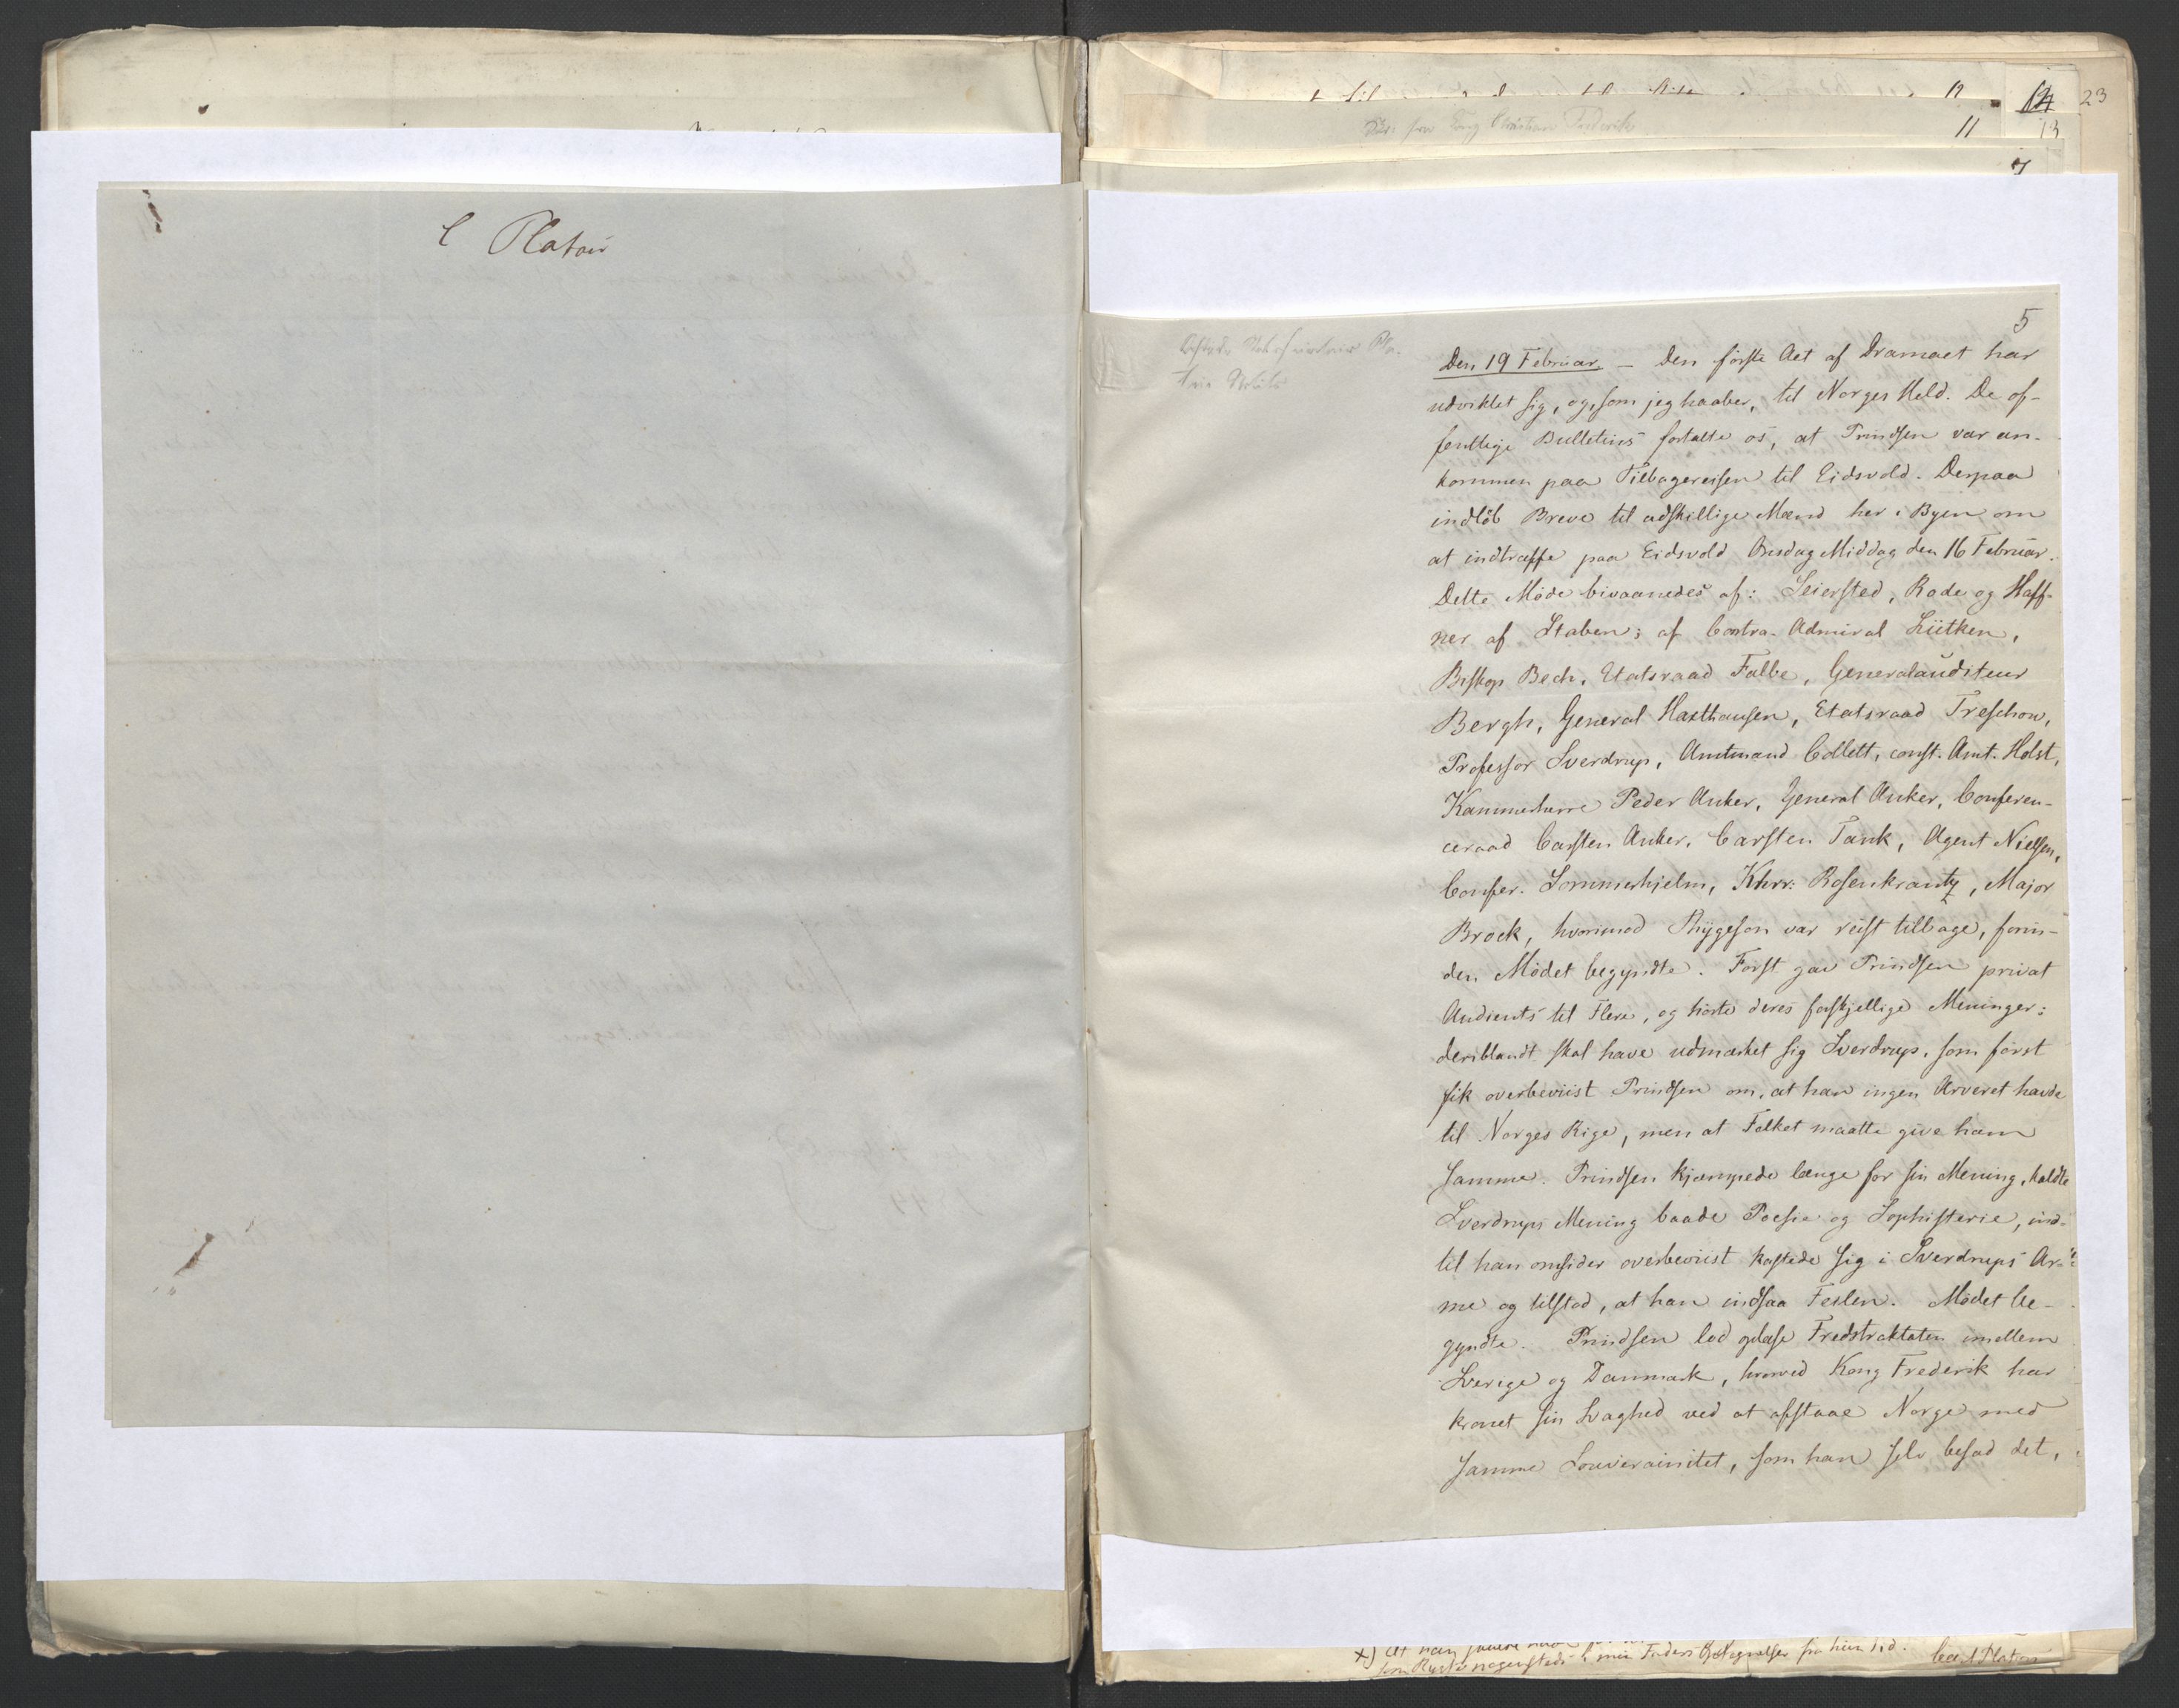 C Platou
23
11
13
7
5
Den 19 Februar. – Den første Act af Dramaet har
udviklet sig, og, som jeg haaber, til Norges Held. De of-
fentlige Bulletins fortalte os, at Prindsen var an-
kommen paa Tilbagereisen til Eidsvold. Derpaa
indløb Breve til adskillige Mænd her i Byen om
at indtræffe paa Eidsvold Onsdag Middag den 16 Februar.
Dette Møde bivaanedes af: Seiersted, Rode og Haff-
ner af Staben; af Contra-Admiral Lütken,
Biskop Bech, Etatsraad Falbe, Generalauditeur
Bergh, General Haxthausen, Etatsraad Treschow,
Professor Sverdrup, Amtmand Collett, const. Amt. Holst,
Kammerherre Peder Anker, General Anker, Conferen-
ceraad Carsten Anker, Carsten Tank, Agent Nielsen,
Confer. Sommerhjelm, Khrr: Rosenkrantz, Major
Brock, hvorimod Thygeson var reist tilbage, forin-
den Mødet begyndte. Først gav Prindsen privat
Audients til Flere, og hørte deres forskjellige Meninger;
deriblandt skal have udmærket sig Sverdrup, som først
fik overbeviist Prindsen om, at han ingen Arveret havde
til Norges Rige, men at Folket maatte give ham
samme. Prindsen kjæmpede længe for sin Mening, kaldte
Sverdrups Mening baade Poesie og Sophisterie, ind-
til han omsider overbeviist kastede sig i Sverdrups Ar-
me og tilstod, at han indsaa Feilen. Mødet be-
gyndte. Prindsen lod oplæse Fredstraktaten imellem
Sverige og Danmark, hvorved Kong Frederik har
kronet sin Svaghed ved at afstaae Norge med
samme Souverainitet, som han selv besad det,
min Faders Optegnelser fra hiin Tid.